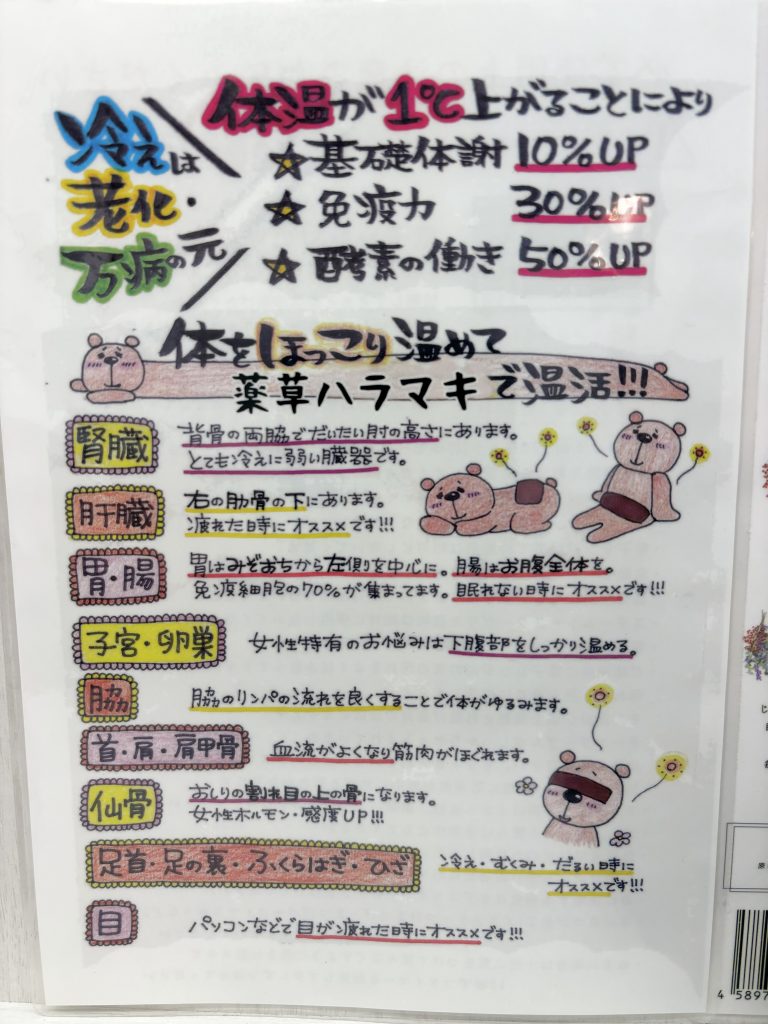 冷えは
老化・
万病の元
体温が1℃上がることにより
☆基礎体謝 10%UP
☆免疫力 30%UP
☆酵素の働き 50%UP
体をほっこり温めて
薬草ハラマキで温活!!!
腎臓
背骨の両脇でだいたい肘の高さにあります。
とても冷えに弱い臓器です。
肝臓
右の肋骨の下にあります。
疲れた時にオススメです!!!
胃・腸
胃はみぞおちから左側を中心に。腸はお腹全体を。
免疫細胞の70%が集まってます。眠れない時にオススメです!!!
子宮・卵巣
女性特有のお悩みは下腹部をしっかり温める。
脇
脇のリンパの流れを良くすることで体がゆるみます。
首・肩・肩甲骨
血流がよくなり筋肉がほぐれます。
仙骨
おしりの割れ目の上の骨になります。
女性ホルモン・感度UP!!!
足首・足の裏・ふくらはぎ・ひざ
冷え・むくみ・だるい時に
オススメです!!!
目
パソコンなどで目が疲れた時にオススメです!!!
原
4 5897